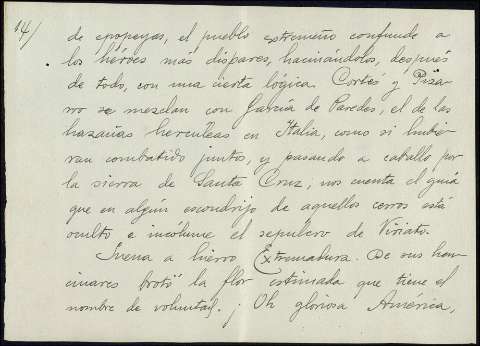 14/
de epopeyas, el pueblo extremeño confunde a
los héroes más dispares, hacinándolos, después
de todo, con una cierta lógica. Cortés y Piza-
rro se mezclan con García de Paredes, el de las
hazañas hercúleas en Italia, como si hubie-
ran combatido juntos, y pasando a caballo por
la sierra de Santa Cruz, nos cuenta el guía
que en algún escondrijo de aquellos cerros está
oculto e incólume el sepulcro de Viriato.
Suena a hierro Extremadura. De sus hon-
cinares brotó la flor estimada que tiene el
nombre de voluntad. ¡Oh gloriosa América,